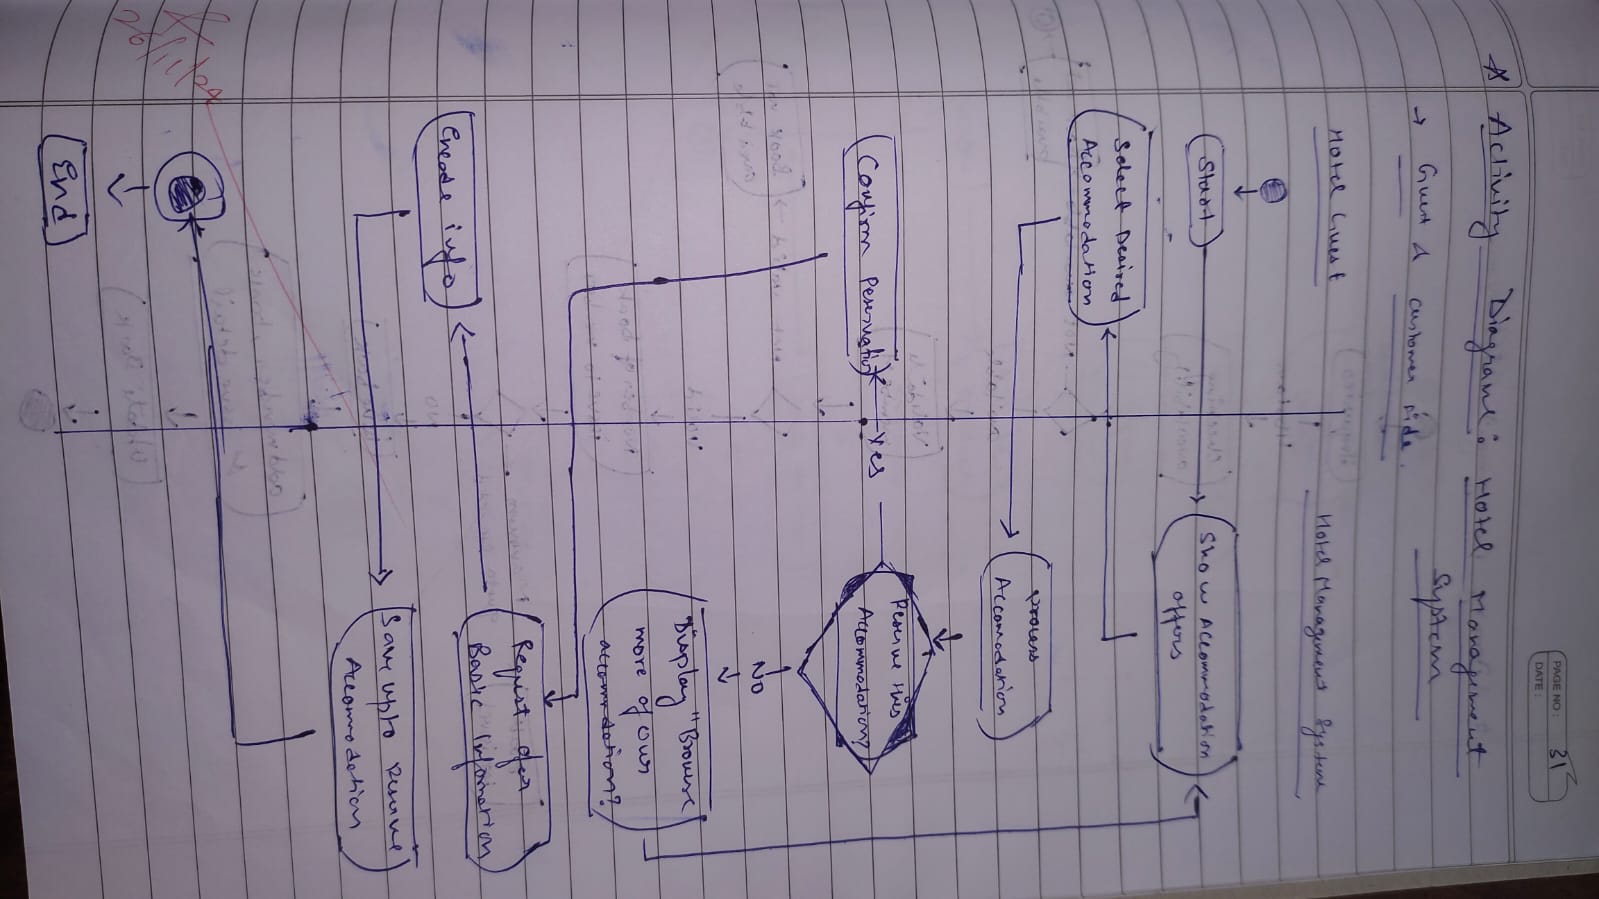 PAGE NO: 31
DATE:
* Activity Diagram: Hotel Management
System
→ Guest & customer side.
Hotel Guest
Hotel Management System
Start
Show Accommodation
offers
Select Desired
Accommodation
process
Accomodation
Reserve this
Accommodation?
Yes
Confirm
No
Display "Browse
more of our
accommodation?
Request for
Basic Information
Encode info
Save upto reserve
Accomodation
End
26/11/24